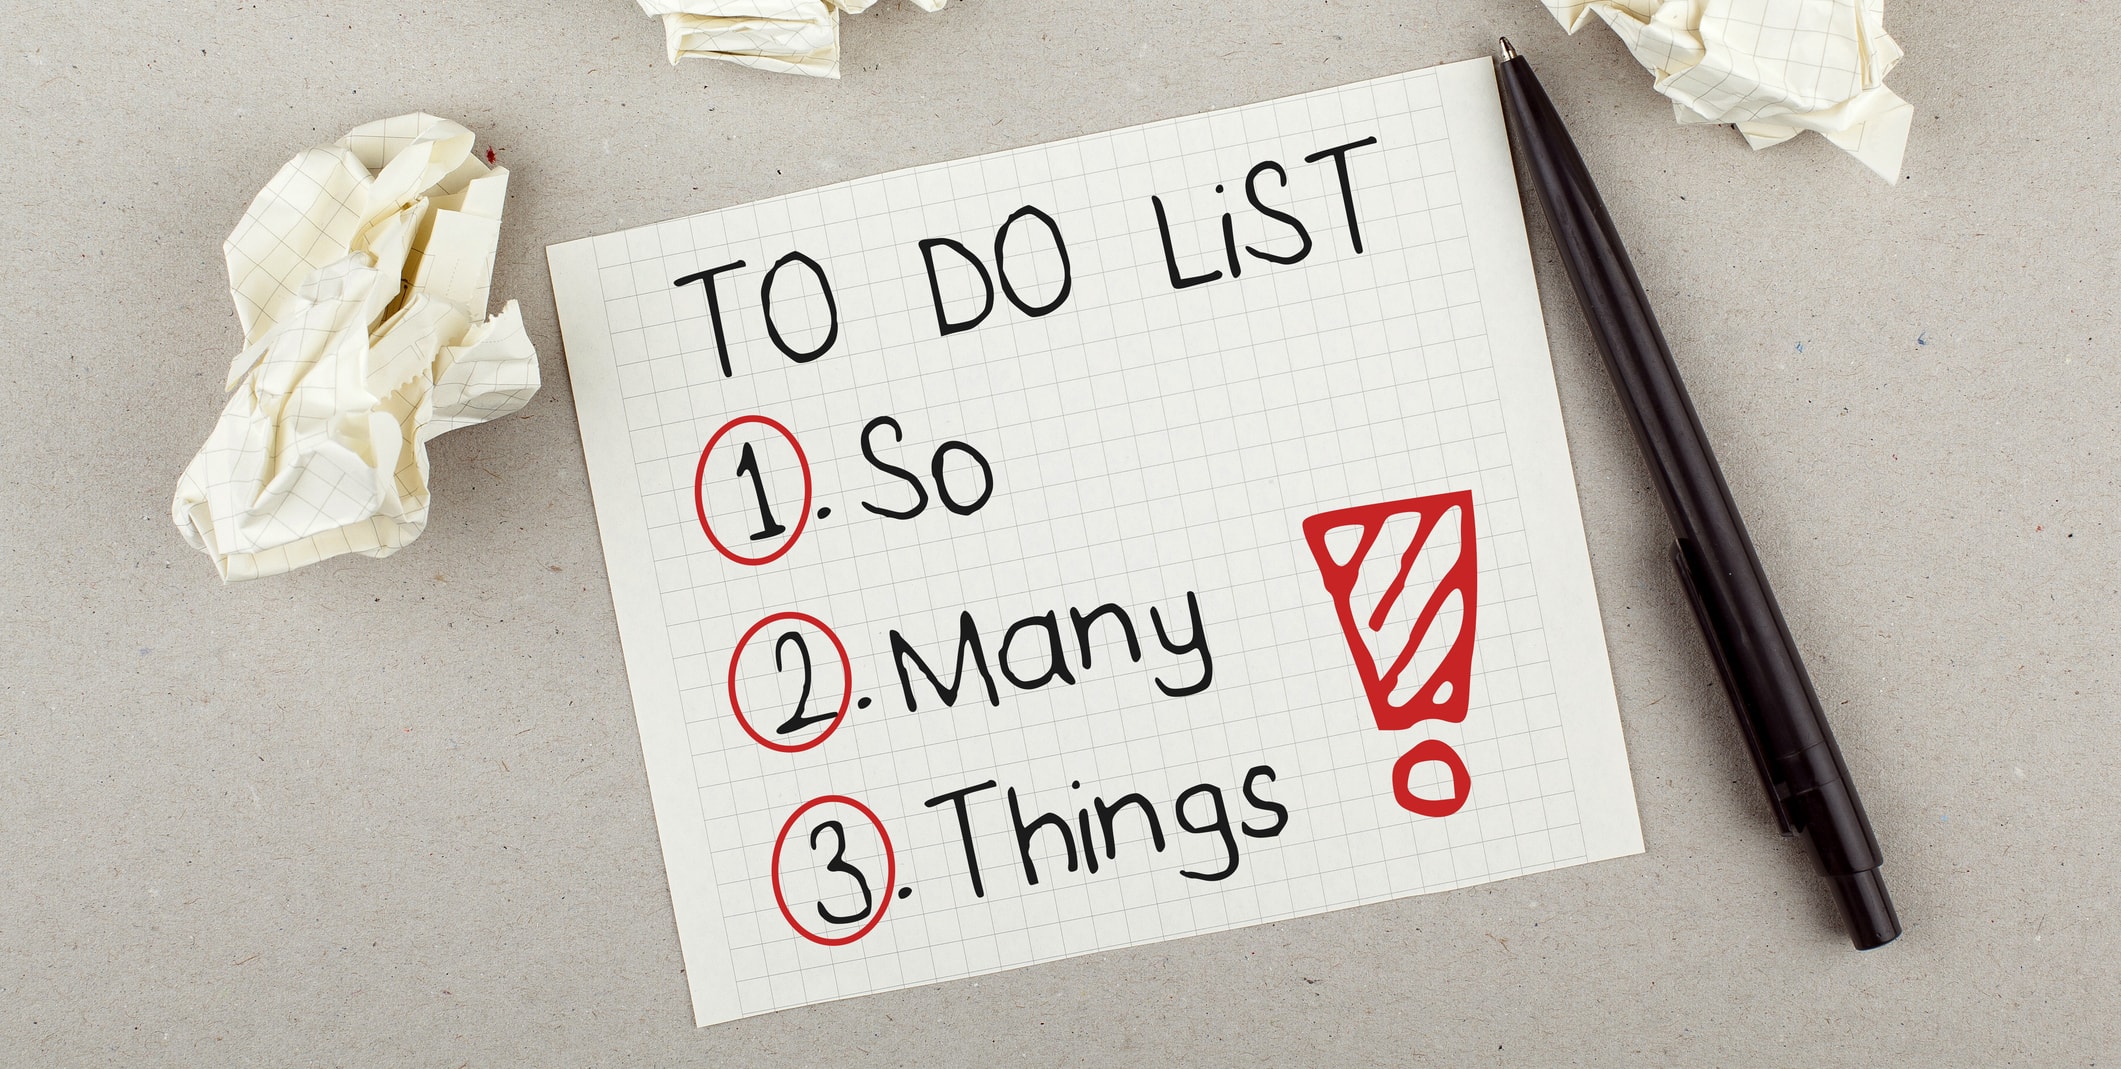 TO DO LiST
1. So
2. Many
3. Things !